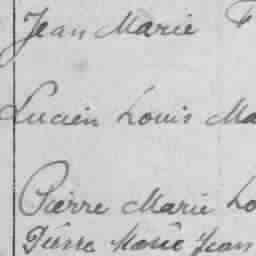 Jean Marie F
Lucien Louis Ma
Pierre Marie Lo
Pierre Marie Jean